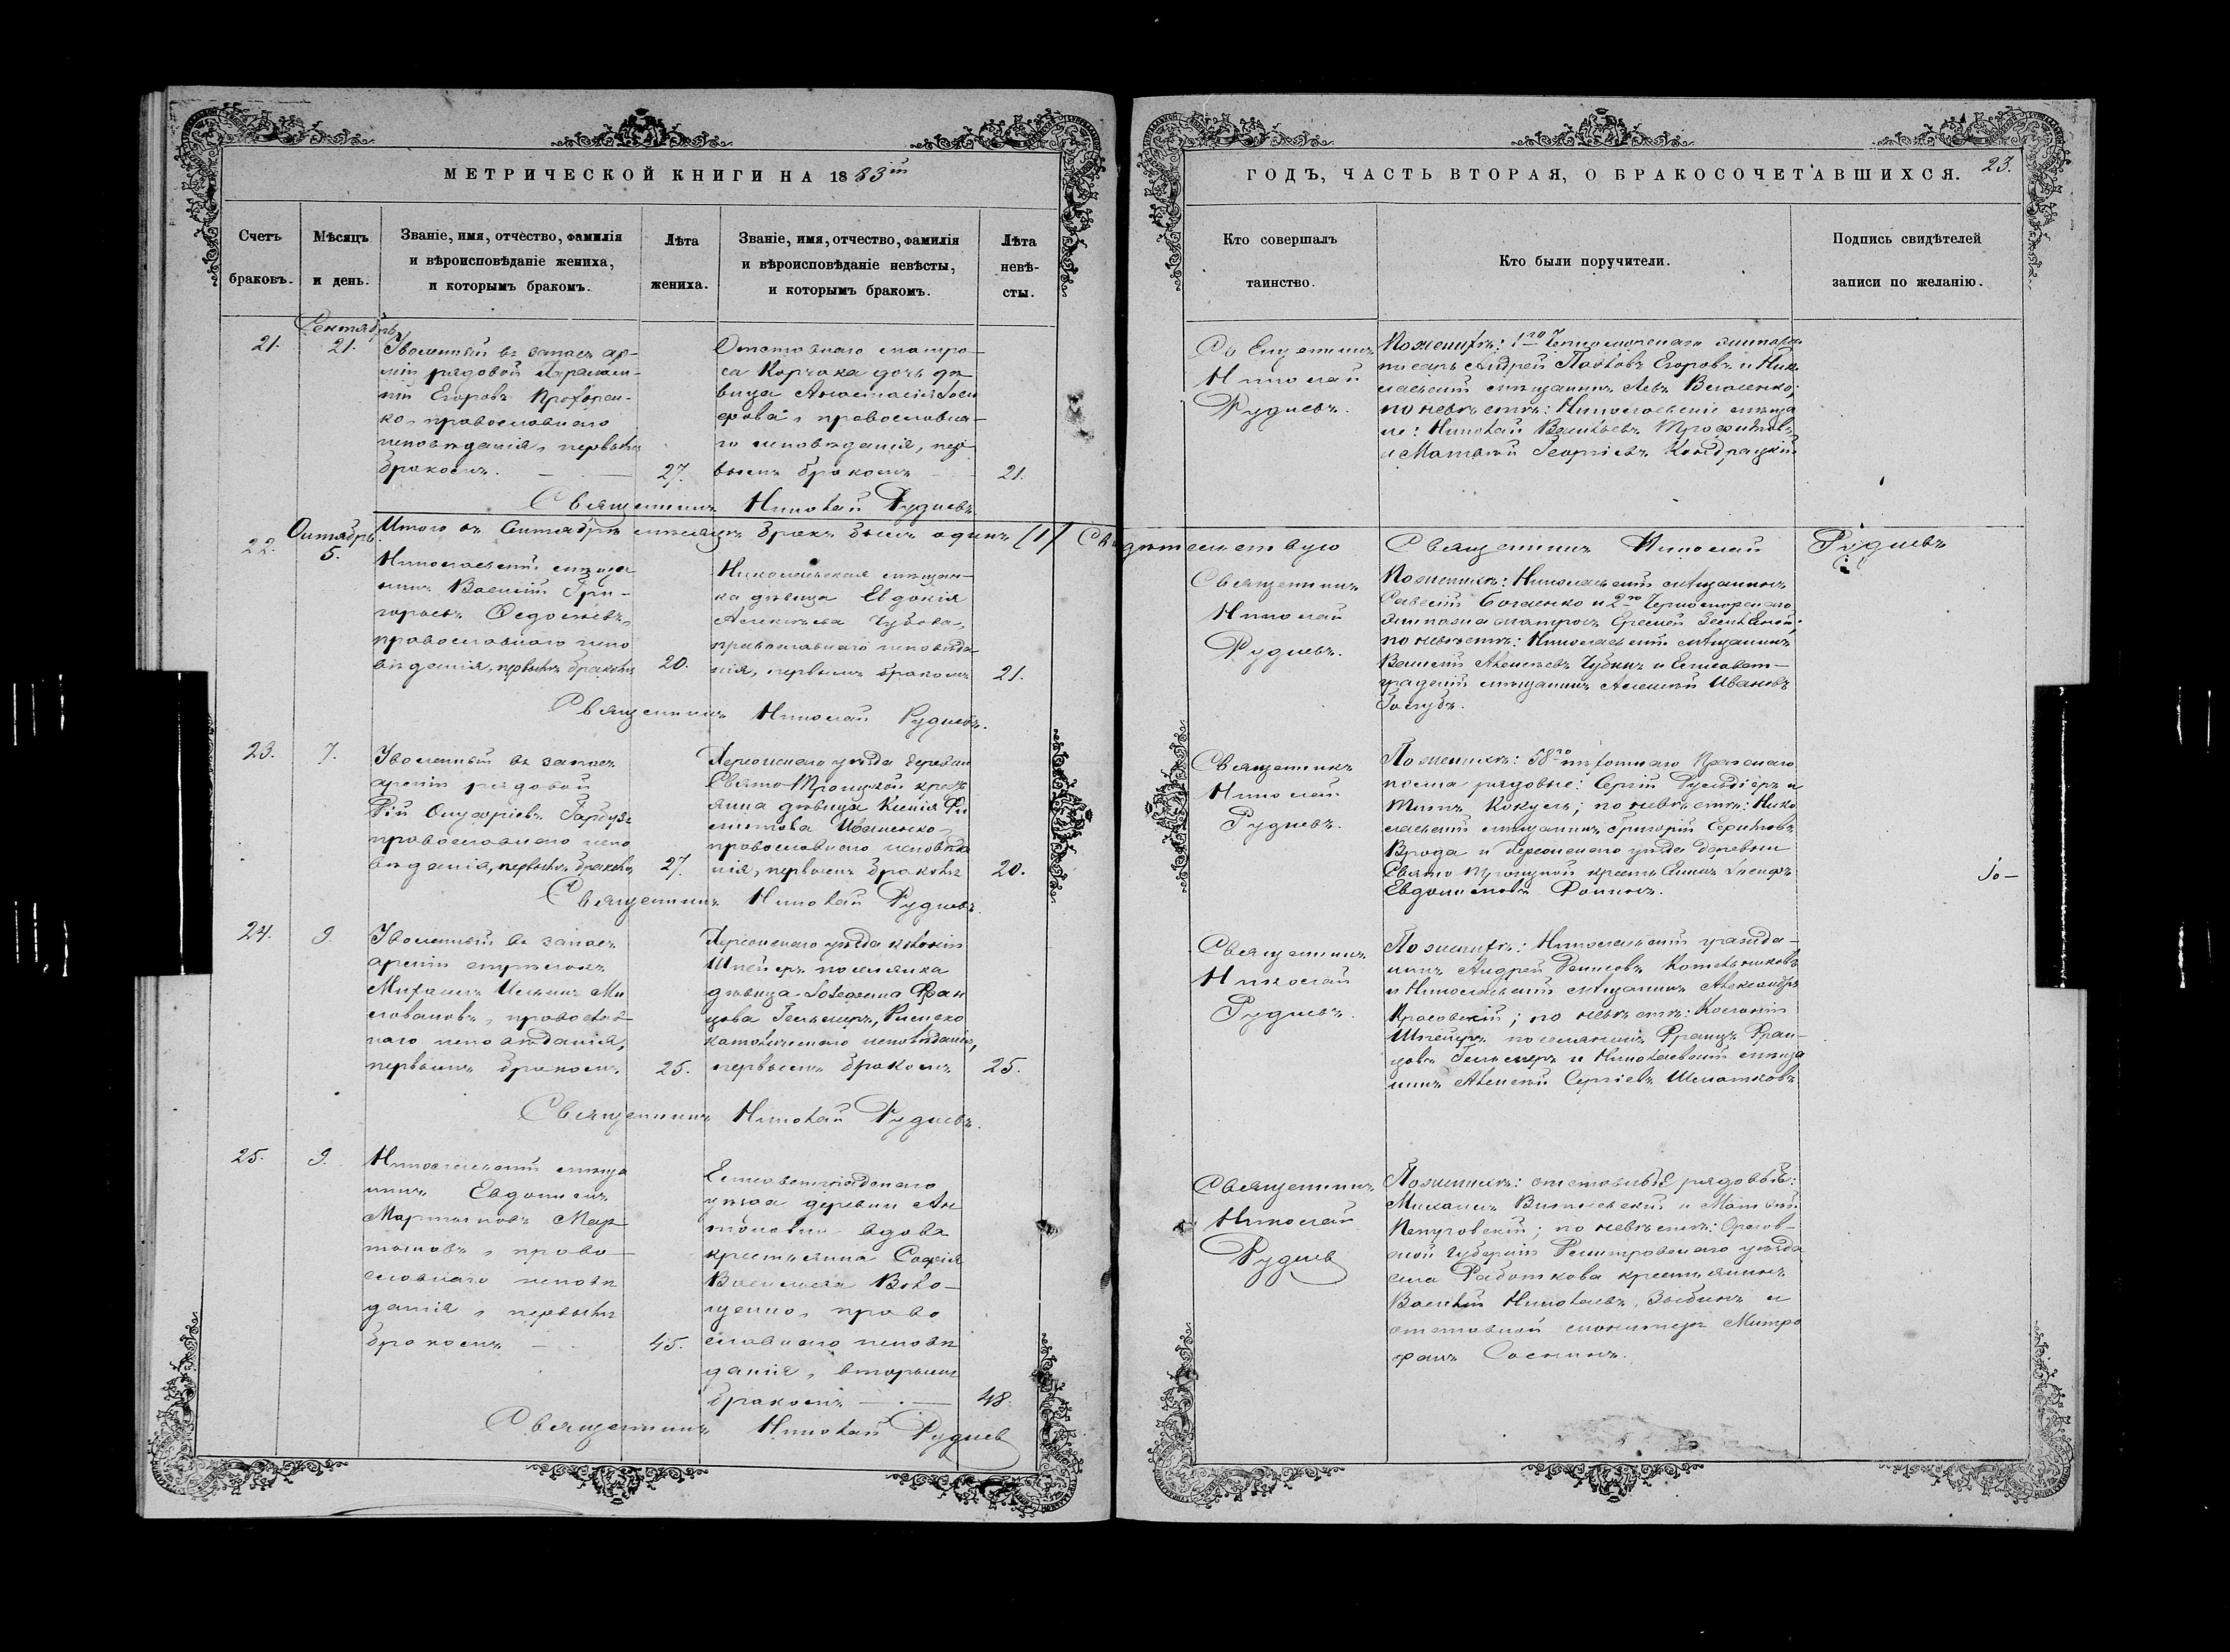 МЕТРИЧЕСКОЙ КНИГИ НА 1883ій
ГОДЪ, ЧАСТЬ ВТОРАЯ, О БРАКОСОЧЕТАВШИХСЯ.
23.
Счетъ
браковъ.
Мѣсяцъ
и день.
Званіе, имя, отчество, фамилія
и вѣроисповѣданіе жениха,
и которымъ бракомъ.
Лѣта
жениха.
Званіе, имя, отчество, фамилія
и вѣроисповѣданіе невѣсты,
и которымъ бракомъ.
Лѣта
невѣ-
сты.
Кто совершалъ
таинство.
Кто были поручители.
Подпись свидѣтелей
записи по желанію.
21.
Сентябрь
21.
Уволенный въ запасъ ар-
міи рядовой
Егоровъ
ко, православнаго
исповѣданія, первымъ
бракомъ.
27.
Отставнаго матро-
са Корчака дочь дѣ-
вица Анастасія
православна-
го исповѣданія, пер-
вымъ бракомъ
21.
Священникъ
Николай
Рудневъ.
По женихѣ: 1го Черноморскаго экипажа
писарь Андрей Павловъ Егоровъ и Нико
лаевскій мѣщанинъ Левъ
по невѣстѣ: Николаевскіе мѣща
не: Николай Васильевъ Трофимовъ
и Матвѣй Георгіевъ Кондрацкій
Священникъ Николай Рудневъ.
Итого въ Сентябрѣ мѣсяцѣ бракъ былъ одинъ (1) Свидѣтельствую Священникъ Николай Рудневъ
22.
Октябрь
5.
Николаевскій мѣща
нинъ Василій Гри-
горьевъ Ѳедосѣевъ,
православнаго испо
вѣданія, первымъ бракомъ
20.
Николаевская мѣщан-
ка дѣвица Евдокія
Алексѣева Чубова,
православнаго исповѣда
нія, первымъ бракомъ
21.
Священникъ
Николай
Рудневъ.
По женихѣ: Николаевскій мѣщанинъ
Савелій и 2го Черноморскаго
экипажа матросъ Еремѣй
по невѣстѣ: Николаевскій мѣщанинъ
Василій Алексѣевъ и Елисавет-
градскій мѣщанинъ Алексѣй Ивановъ
Голубъ.
Священникъ Николай Рудневъ.
23.
7.
Уволенный въ запасъ
арміи рядовой
Онуфріевъ Гарбузъ
православнаго испо
вѣданія, первымъ бракомъ
27.
Херсонскаго уѣзда деревни
Свято-Троицкой кресть
янка дѣвица Ксенія
Иваненко
православнаго исповѣда
нія, первымъ бракомъ
20.
Священникъ
Николай
Рудневъ.
По женихѣ: 58го пѣхотнаго Прагскаго
полка рядовые: Сергій и
Титъ по невѣстѣ: Нико
лаевскій мѣщанинъ Григорій
Врода и Херсонскаго уѣзда деревни
Свято Троицкой крестьянинъ Іосифъ
Евдокимовъ Фоминъ.
Священникъ Николай Рудневъ.
24.
9.
Уволенный въ запасъ
арміи
Михаилъ Ильинъ Ми
ловановъ, православ
наго исповѣданія,
первымъ бракомъ
25.
Херсонскаго уѣзда колоніи
Шпейеръ поселянка
дѣвица Фран
цова Римско
католическаго исповѣданія,
первымъ бракомъ
25.
Священникъ
Николай
Рудневъ.
По женихѣ: Николаевскій гражда-
нинъ Андрей Денисовъ Котельниковъ
и Николаевскій мѣщанинъ Александръ
Красовскій; по невѣстѣ: Колоніи
Шпейеръ поселянинъ Францъ Фран-
цовъ и Николаевскій мѣща
нинъ Алексѣй Сергіевъ
Священникъ Николай Рудневъ.
25.
9.
Николаевскій мѣща
нинъ Евдокимъ
Мартыновъ Мар
тыновъ, право
славнаго исповѣ
данія, первымъ
бракомъ
45.
Елисаветградскаго
уѣзда деревни Ан
тоновки вдова
крестьянка Софія
Васильева Воло-
щенко, право
славнаго исповѣ
данія, вторымъ
бракомъ
48.
Священникъ
Николай
Рудневъ
По женихѣ: отставные рядовые:
Михаилъ и Матвѣй
по невѣстѣ: Орлов-
ской губерніи Дмитровскаго уѣзда
села Работкова крестьянинъ
Василій Николаевъ Зыбинъ и
отставной Митро
фанъ Соснинъ.
Священникъ Николай Рудневъ